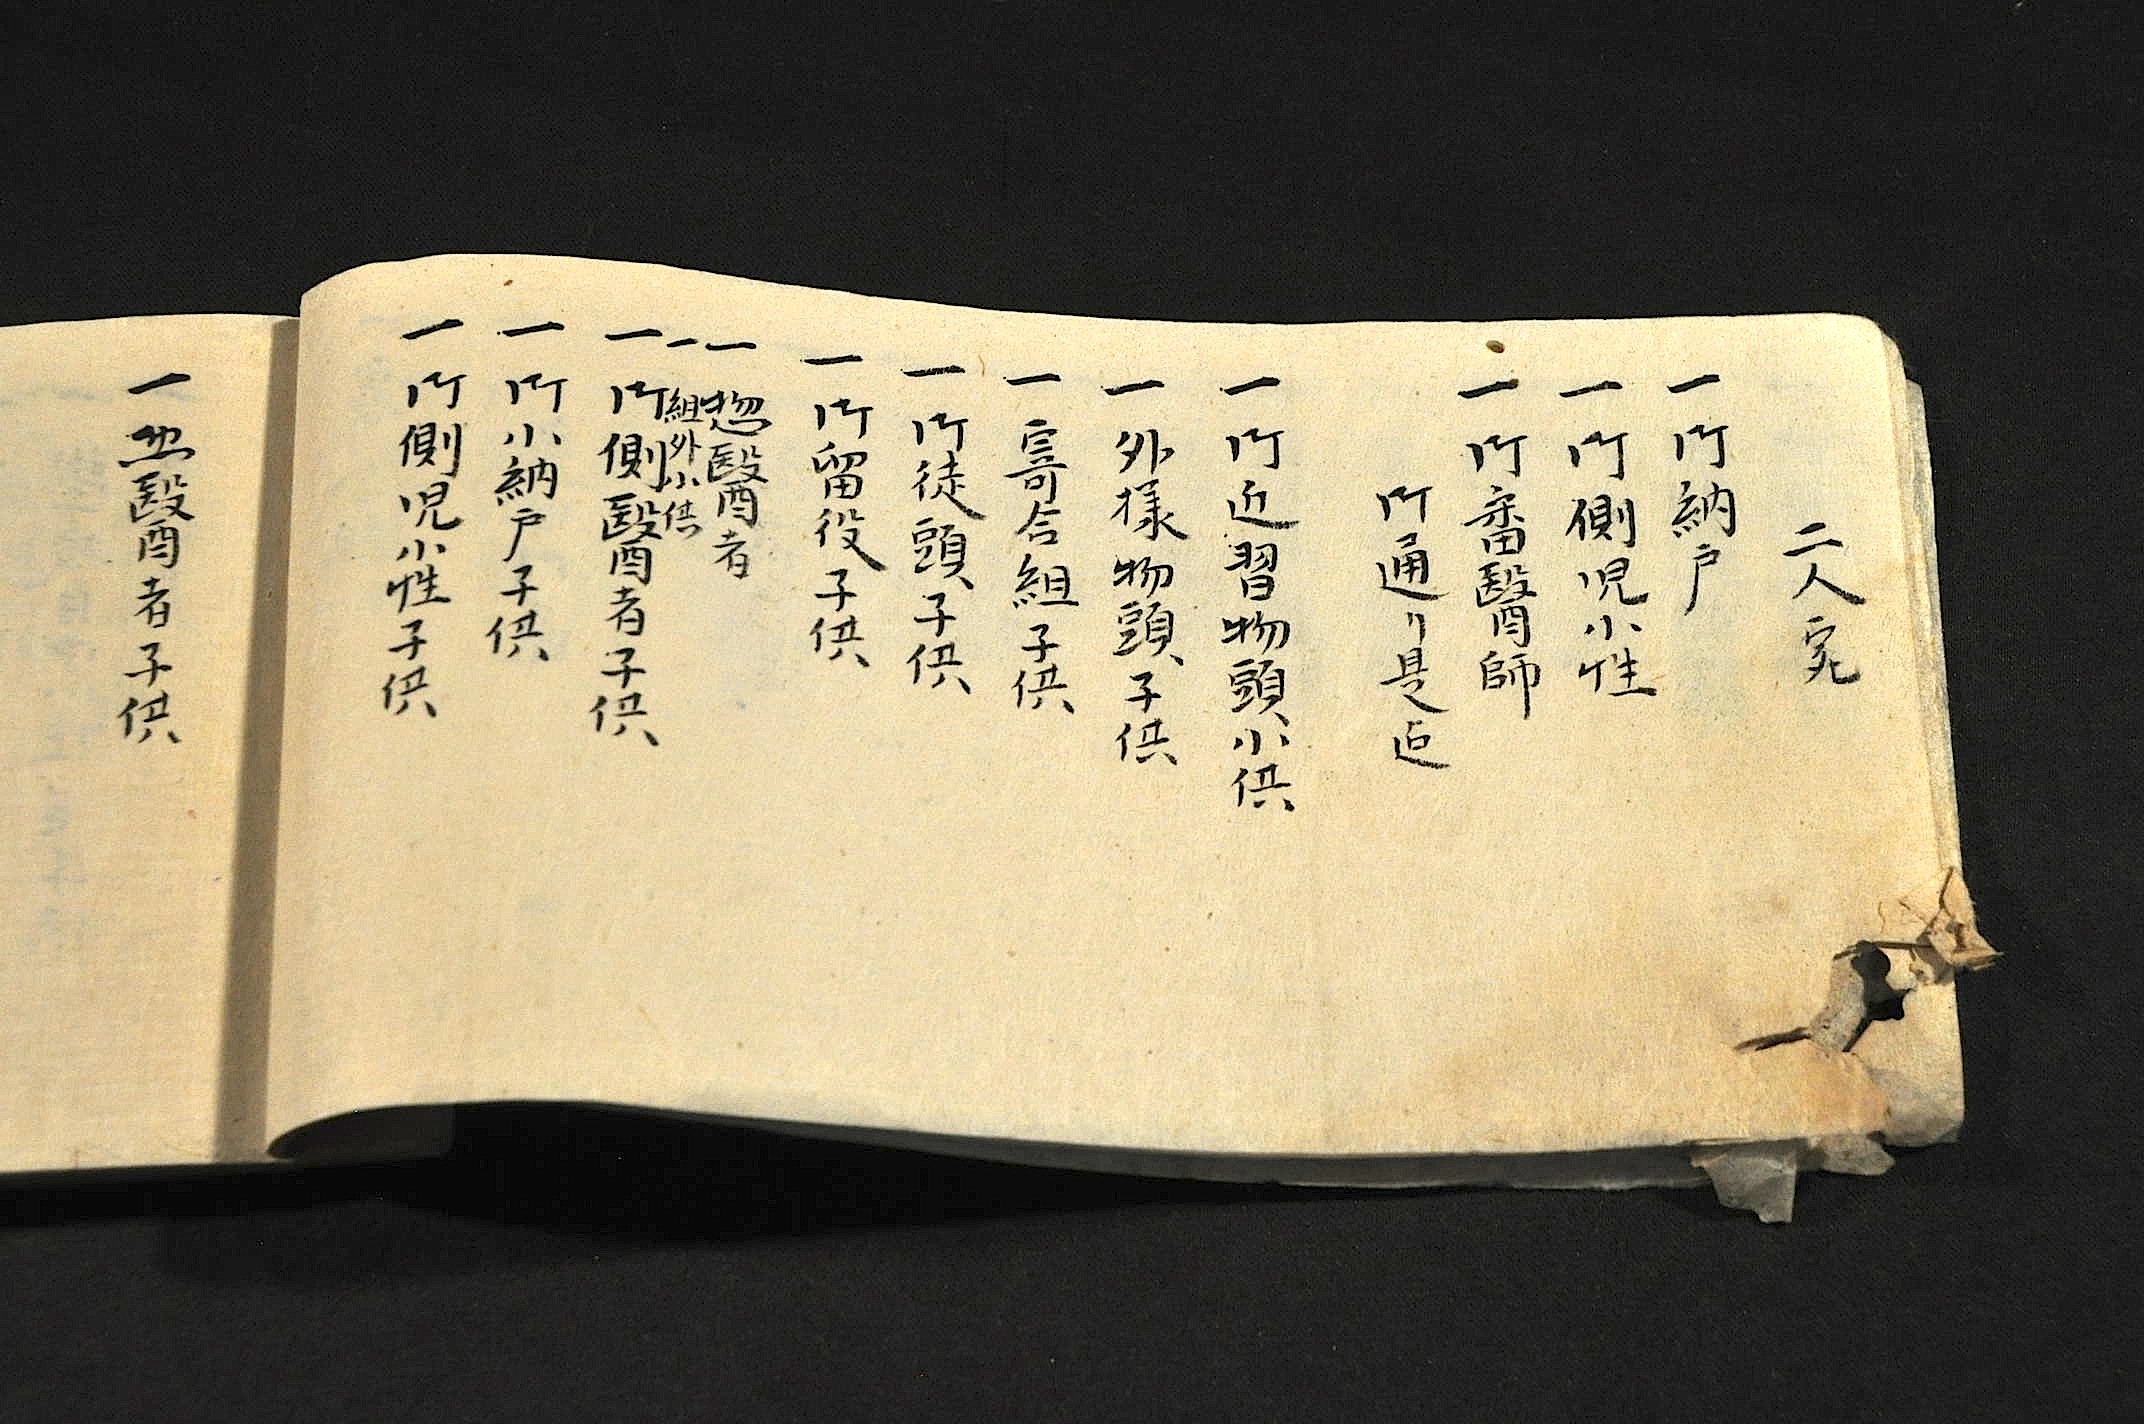 二人宛
一御納戸
一御側児小性
一御番醫師
御通リ是迠
一御近習物頭小供
一外様物頭子供
一寄合組子供
一御徒頭子供
一御留役子供
一惣醫者
一組外小供
一御側醫者子供
一御小納戸子供
一御側児小性子供
一並醫者子供